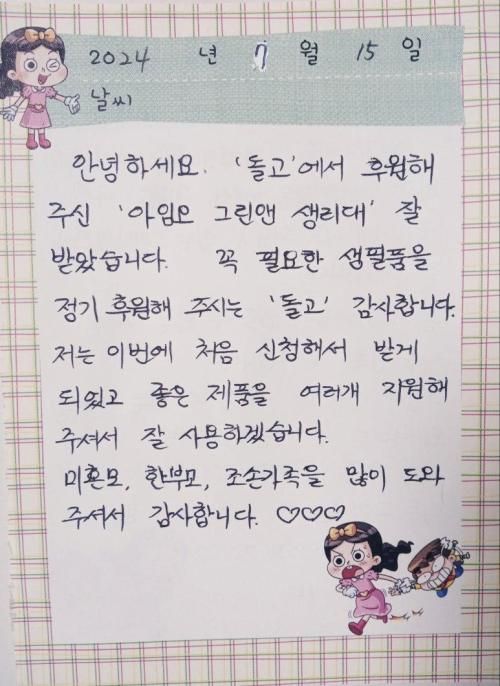 2024 년 7 월 15 일
날씨
안녕하세요. '돌고'에서 후원해
주신 '아임오 그린앤 생리대' 잘
받았습니다. 꼭 필요한 생필품을
정기 후원해 주시는 '돌고' 감사합니다.
저는 이번에 처음 신청해서 받게
되었고 좋은 제품을 여러개 지원해
주셔서 잘 사용하겠습니다.
미혼모, 한부모, 조손가족을 많이 도와
주셔서 감사합니다. ♡♡♡